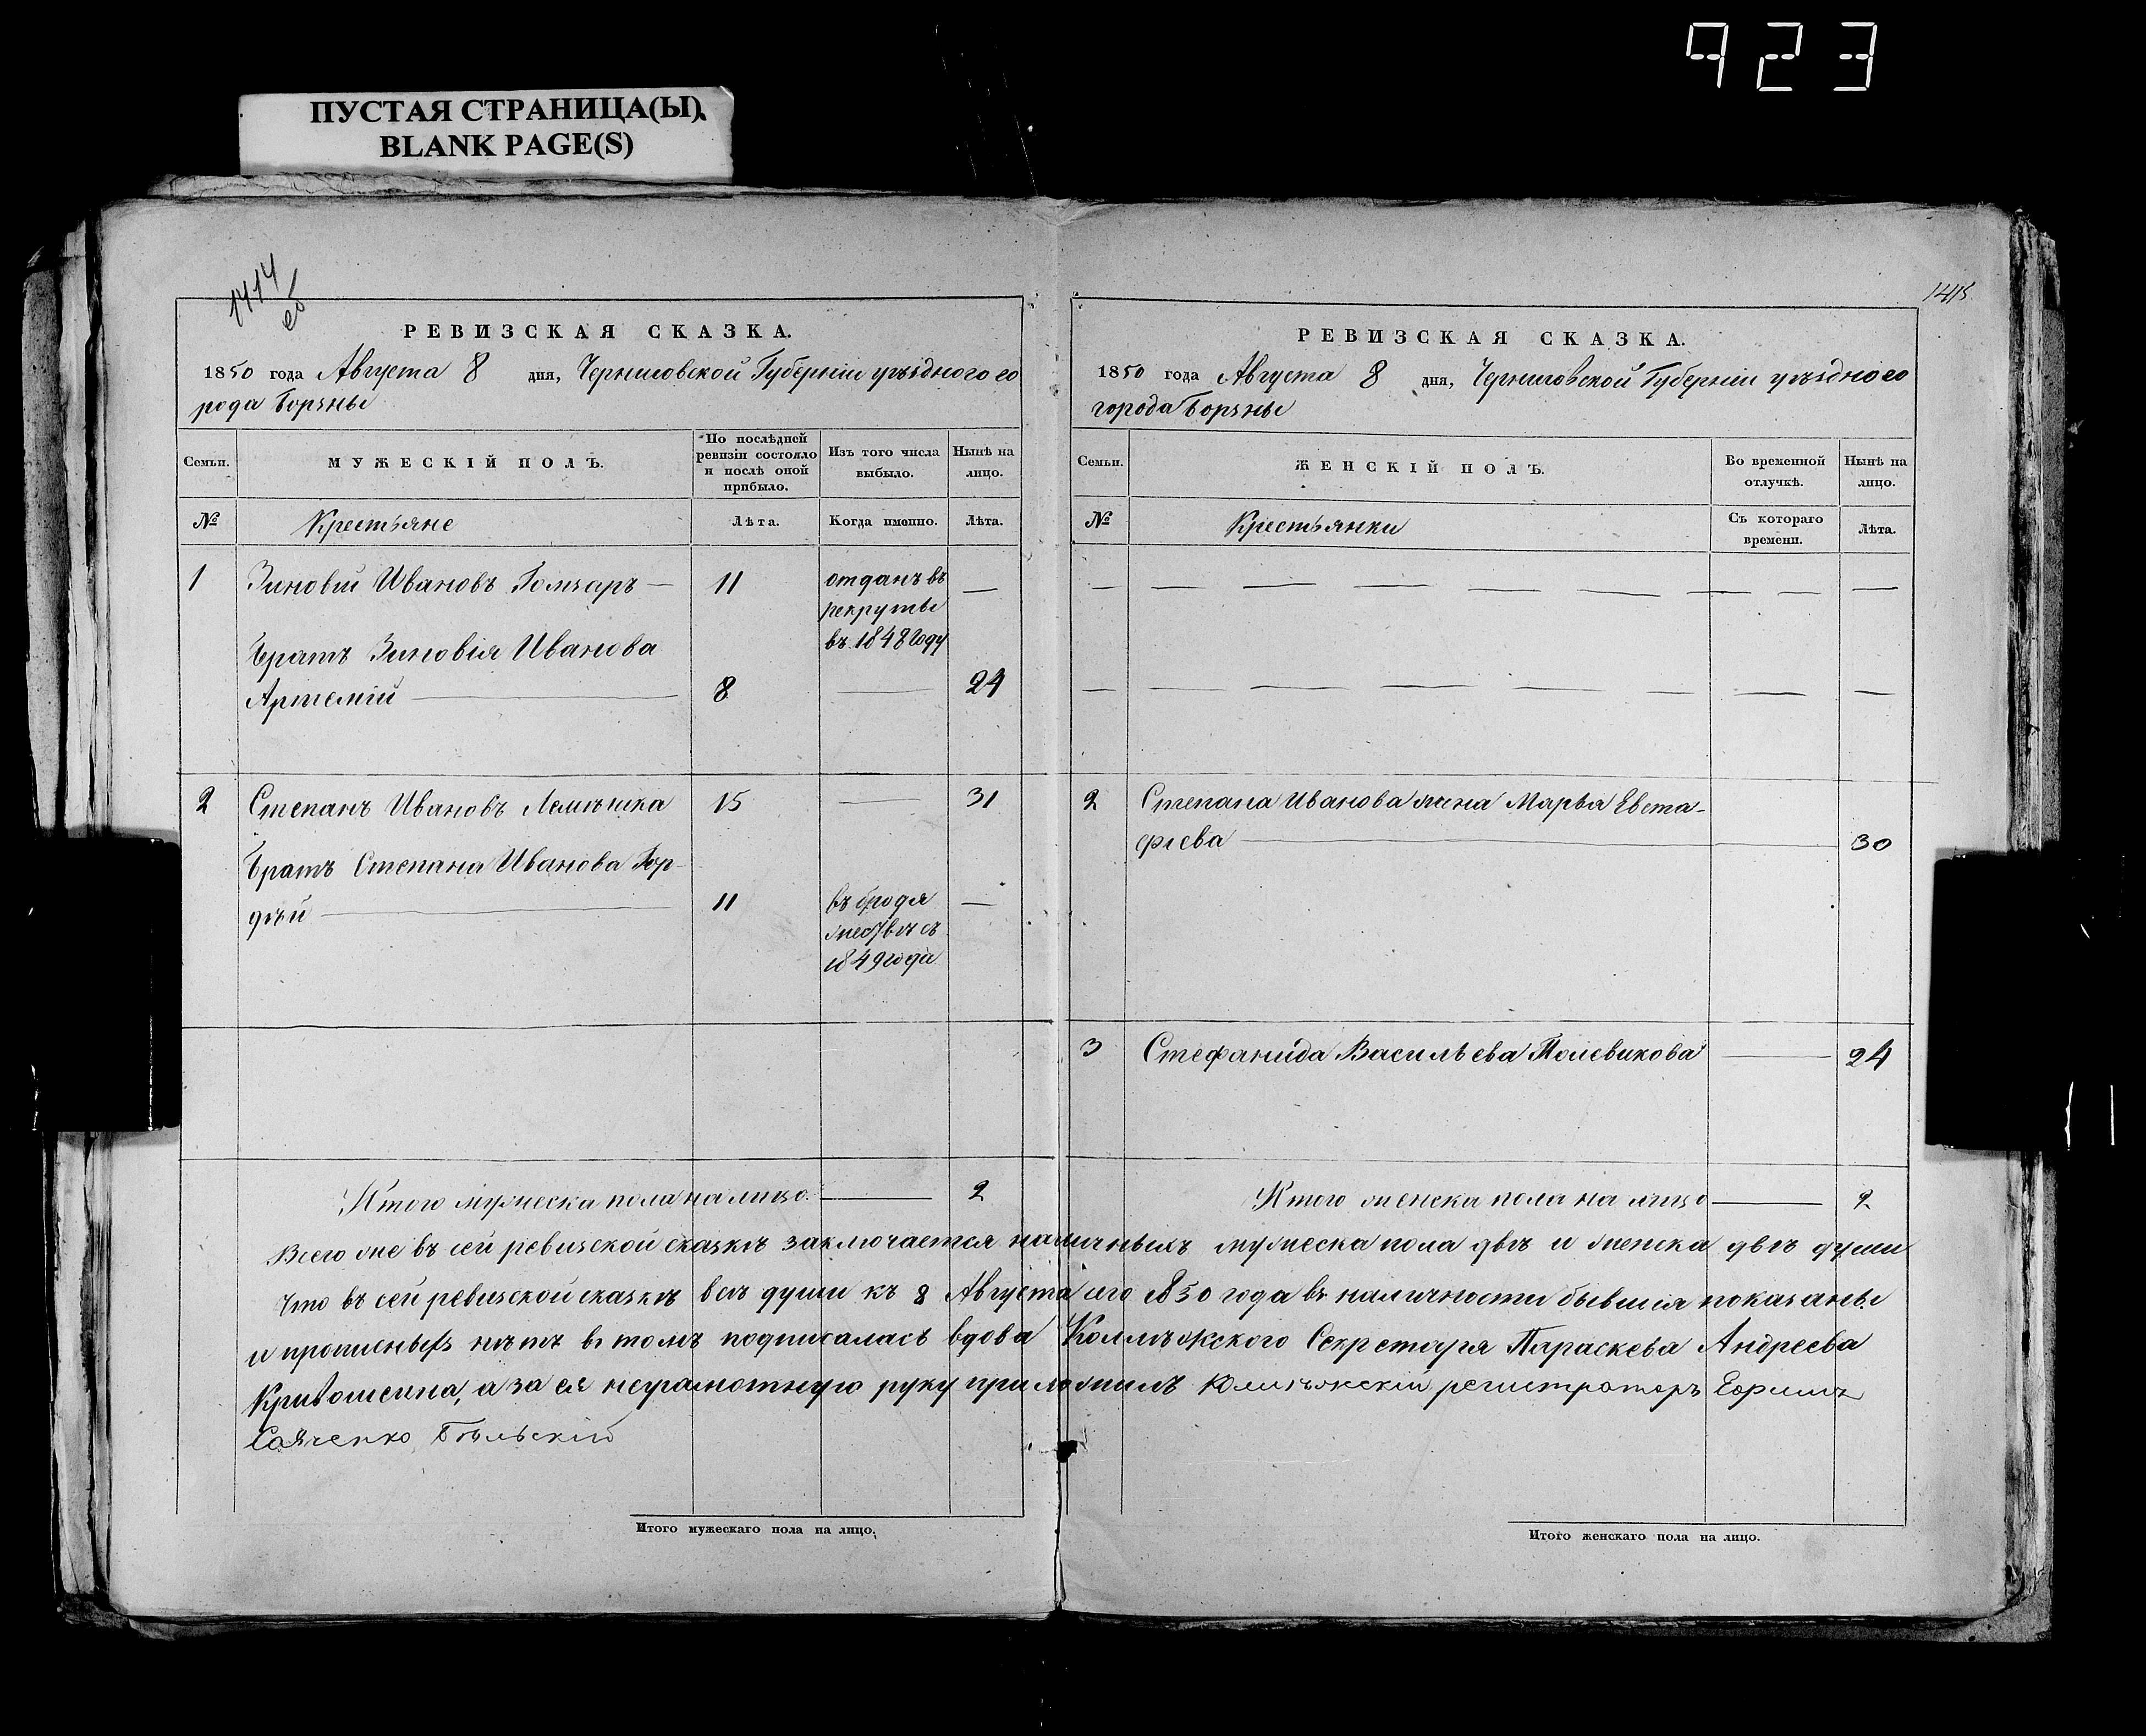 923
ПУСТАЯ СТРАНИЦА(Ы).
BLANK PAGE(S)
1414
об
РЕВИЗСКАЯ СКАЗКА.
1850 года Августа 8 дня, Черниговской Губерніи уѣзднаго го
рода Борзны
Семьи.
МУЖЕСКІЙ ПОЛЪ.
По послѣдней ревизіи состояло и послѣ оной прибыло.
Изъ того числа выбыло.
Нынѣ на лицо.
№
Крестьяне
Лѣта.
Когда именно.
Лѣта.
1 Зиновій Ивановъ Гончаръ — 11 отданъ въ —
рекруты
въ 1848 году
Братъ Зиновія Иванова
Артемій — 8 — 24
2 Степанъ Ивановъ Лемѣшка 15 — 31
Братъ Степана Иванова Гор-
дѣй — 11 въ бродя —
жествѣ съ
1849 года
Итого мужеска пола на лицо — 2
1415
РЕВИЗСКАЯ СКАЗКА.
1850 года Августа 8 дня, Черниговской Губерніи уѣзднаго
города Борзны
Семьи.
ЖЕНСКІЙ ПОЛЪ.
Во временной отлучкѣ.
Нынѣ на лицо.
№
Крестьянки
Съ котораго времени.
Лѣта.
2 Степана Иванова жена Марья Евста-
фіева — 30
3 Стефанида Васильева — 24
Итого женска пола на лицо — 2
Всего же въ сей ревизской сказкѣ заключается наличныхъ мужеска пола двѣ и женска двѣ души
Что въ сей ревизской сказкѣ всѣ души къ 8 Августа сего 1850 года въ наличности бывшія показаны
и прописныхъ нѣтъ въ томъ подписалась вдова Коллѣжского Секретаря Параскева Андреева
Кривошеина, а за ея неграмотную руку приложилъ Колѣжскій регистраторъ Ефимъ
Бѣльскій
Итого мужескаго пола на лицо.
Итого женскаго пола на лицо.